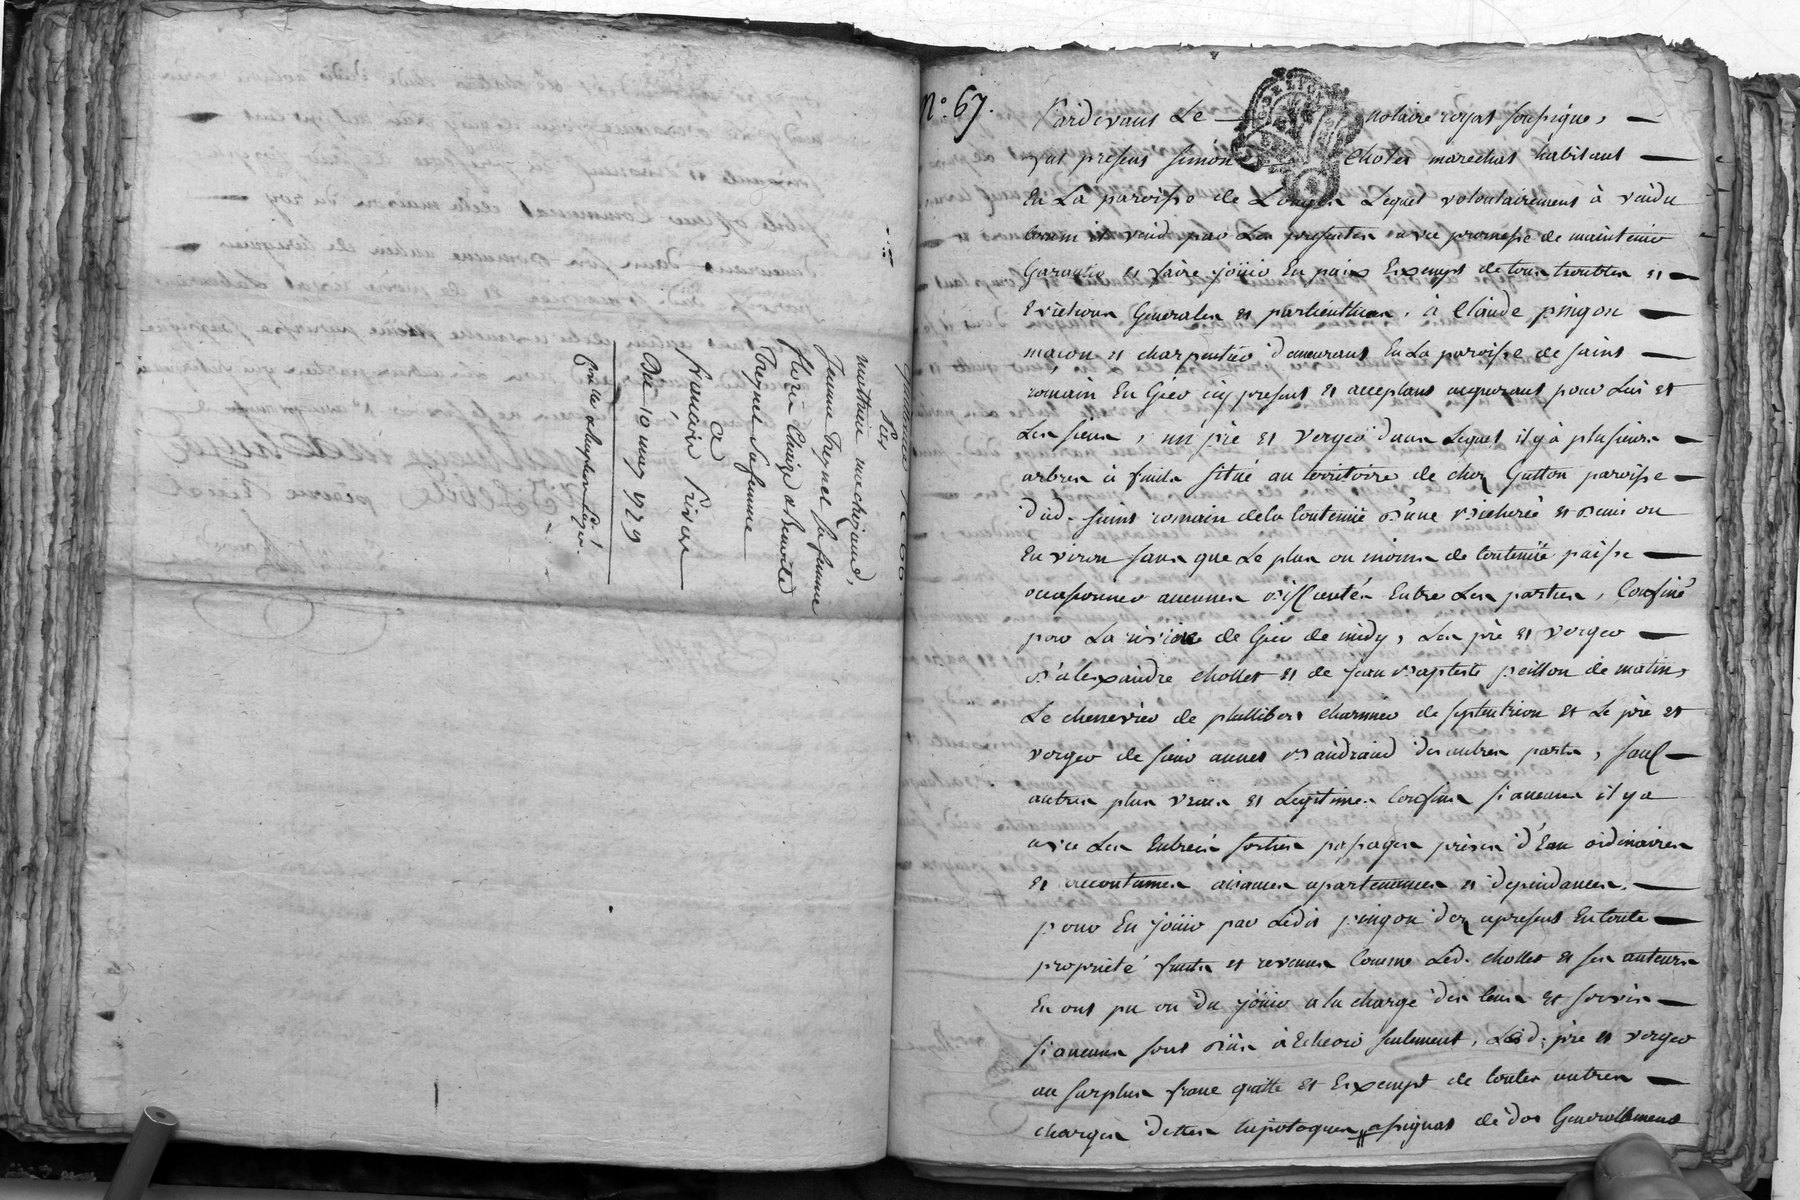 quittance N° 66.
Par
mathieu machizaud,
Jeanne Freynet sa femme
fleurie Chaize et benoite
Freynet sa femme
a
francois Privas
Du 10 may 1729
N°. 67.
Pardevant Le notaire royal soussigné,
fut present simon Cholet marechal habitant
En La paroisse de Longes Lequel volontairement à vendu
comme il vend par Les presentes avec promesse de maintenir
Garantir et faire joüir En paix Exempt de tous troubles et
Evictions Generales et particulliers, à Claude pingon
macon et charpentier demeurant En La paroisse de saint
romain En Gier icy present et acceptant acquerant pour Lui et
Les siens, un pré et verger dans Lequel il y à plusieurs
arbres à fruits situé au territoire de chez Gutton paroisse
dud. saint romain de la Contenüe d'une bicherée et demi ou
En viron sans que Le plus ou moins de Contenüe puisse
occasionner aucunes difficultés Entre Les parties, Confiné
par La riviere de Gier de midy, Les pré et verger
d'alexandre chollet et de jean baptiste peillon de matin,
Le chenevier de phillibert charmier de septentrion et Le pré et
verger de sieur annet baudrand des autres parts, sauf
autres plus vrais et Legitimes Confins si aucuns il y a
avec Les Entrées sorties passages prises d'Eau ordinaires
et accoutumés aisances apartenances et dependances.
pour En joüir par Ledit pingon dez apresent En toute
proprieté fruits et revenus Comme Led. chollet et ses auteurs
En ont pu ou du joüir a la charge des Cens et servis
si aucuns sont dües à Echeoir seulement, Lesd. pré et verger
au surplus franc quitte et Exempt de toutes autres
charges dettes hipotoques assignat de dot Generallement